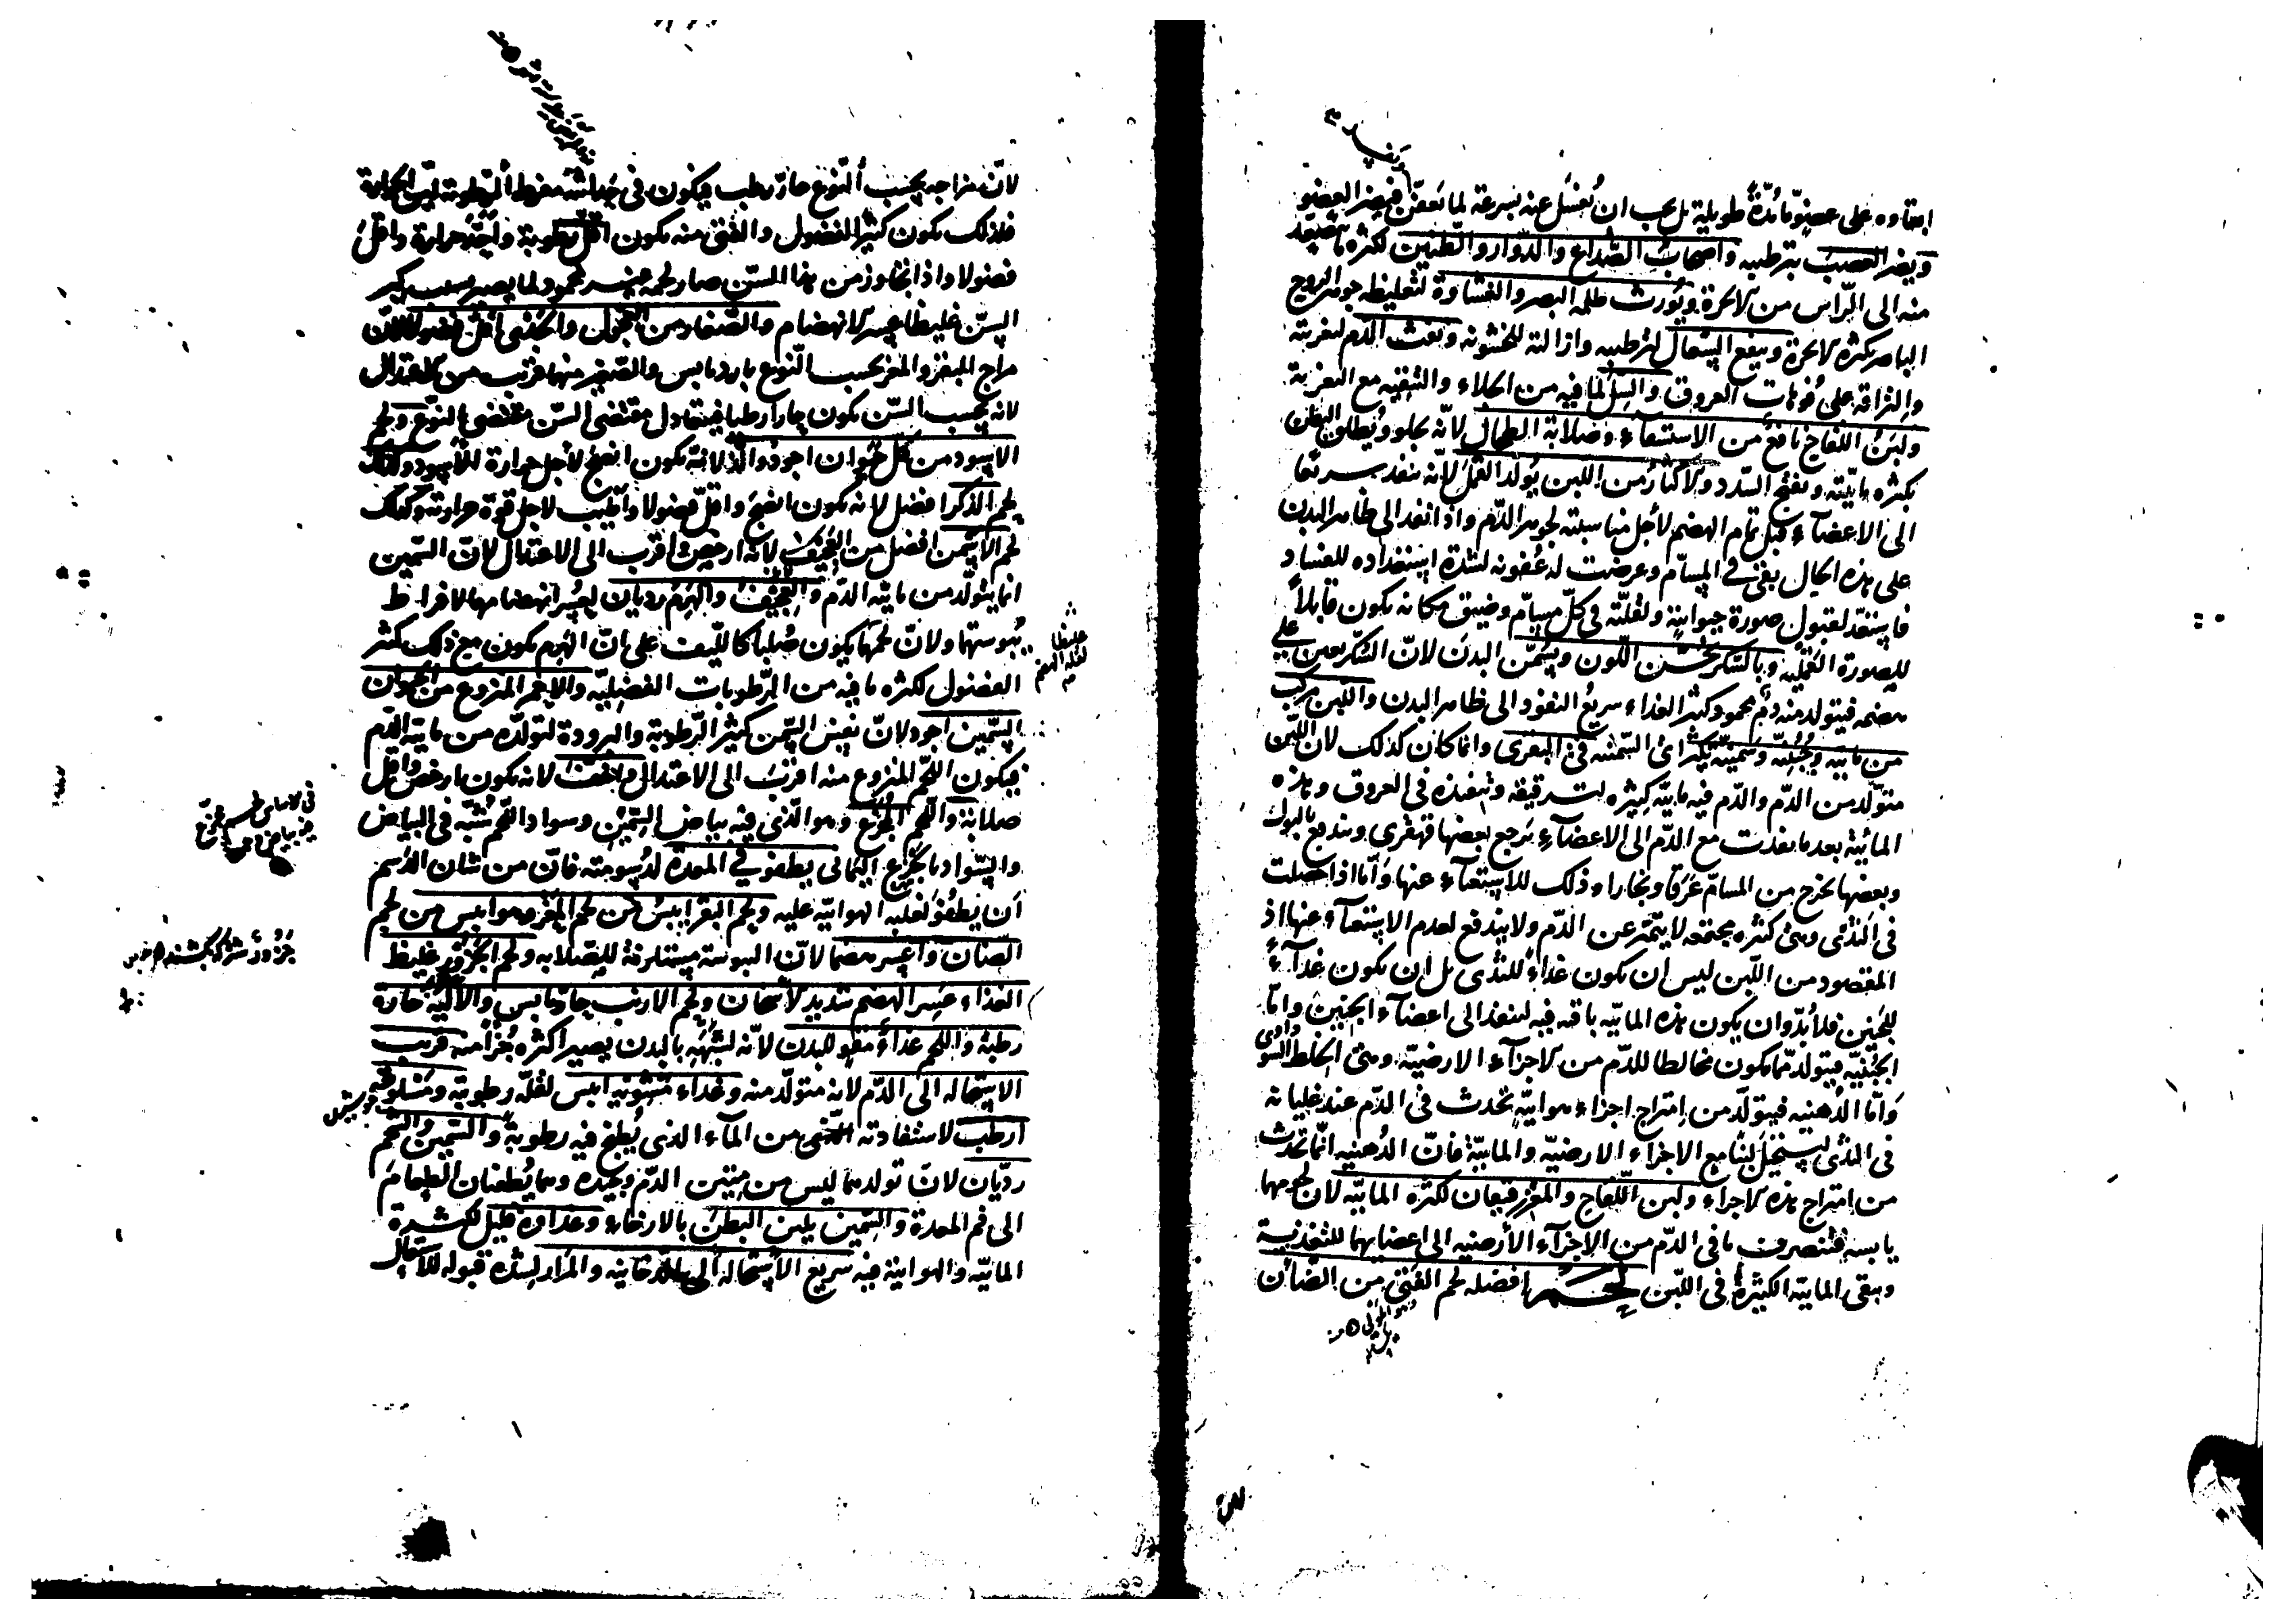 ابقاوه على عضو ما مدة طويلة بل يجب ان يغسل عنه بسرعة لما يعفن فيضر العضو
ويضر العصب بترطيبه واصحاب الصداع والدوار والطنين لكثرة ما يتصعد
منه الى الراس من الابخرة ويورث ظلمة البصر والغشاوة لتغليظه جوهر الروح
الباصر بكثرة الابخرة وينفع السعال لترطيبه وازالته للخشونة ونفث الدم لتغريته
والزاقه على فوهات العروق والسل لما فيه من الجلاء والتنقيه مع التغرية
ولبن اللقاح نافع من الاستسقآء وصلابة الطحال لانه يجلو ويطلق البطن
بكثرة مائيته ويفتح السدد والاكثار من اللبن يولد القمل لانه ينفذ بسرعة
الى الاعضآء قبل تمام الهضم لأجل مناسبته لجوهر الدم واذا نفذ الى ظاهر البدن
على هذه الحال بقى فى المسام وعرضت له عفونه لشدة استعداده للفساد
فاستعد لقبول صورة حيوانية ولقلته فى كل مسام وضيق مكانه يكون قابلاً
للصورة القملية وبالسكر يحسن اللون ويسمن البدن لان السكر يعين على
هضمه فيتولد منه دم محمود كثير الغذاء سريع النفوذ الى ظاهر البدن واللبن مركب
من مائية وجبنية وسمنية تكثر اى السمنية فى البقرى وانما كان كذلك لان اللبن
متولد من الدم والدم فيه مائية كثيرة لترقيقه وتنفيذه فى العروق وهذه
المائية بعد ما نفذت مع الدم الى الاعضآء يرجع بعضها قهقرى ويندفع بالبول
وبعضها يخرج من المسام عرقا وبخارا وذلك للاستغنآء عنها واما اذا حصلت
فى الثدى وهى كثيرة مجتمعة لا يتميز عن الدم ولا يندفع لعدم الاستغنآء عنها اذ
المقصود من اللبن ليس ان يكون غذاءً للثدى بل ان يكون غذآءً
للجنين فلا بد وان يكون هذه المائية باقية فيه لينفذ الى اعضآء الجنين واما
الجبنية فيتولد مما يكون مخالطا للدم من الاجزآء الارضية وهى الخلط السوداوى
واما الدهنيه فيتولد من امتزاج اجزاء هوائية تحدث فى الدم عند غليانه
فى الثدى ليستحيل لبنا مع الاجزاء الارضية والمائية فان الدهنيه انما تحدث
من امتزاج هذه الاجزاء ولبن اللقاح والمعز رقيقان لكثرة المائية لان لحومهما
يابسة فتنصرف ما فى الدم من الاجزآء الأرضيه الى اعضائهما للتغذية
ويبقى المائية الكثيرة فى اللبن لحم افضله لحم الفتى من الضأن
لان مزاجه بحسب النوع حار رطب فيكون فى حداثته مفرط الرطوبة لين الحرارة
فلذلك يكون كثير الفضول والفتى منه يكون اقل رطوبة وأحد حرارة واقل
فضولا واذا تجاوز من هذا السن صار لحمه غير محمود لما يصير بسبب كبر
السن غليظا عسر الانهضام والصغار من العجول والجدى اقل فضولا لان
مزاج البقر والمعز بحسب النوع بارد يابس والصغير منهما قريب من الاعتدال
لانه بحسب السن يكون حارا رطبا فيتعادل مقتضى السن مقتضى النوع ولحم
الاسود من كل حيوان اجود والذ لانه يكون انضج لأجل حرارة للأسود وكذلك
لحم الذكر افضل لانه يكون انضج واقل فضولا واطيب لاجل قوة حرارته وكذلك
لحم الاسمن افضل من العجيف لانه ارخص واقرب الى الاعتدال لان السمين
انما يتولد من مائية الدم والعجيف والهرم رديان لعسر انهضامهما لافراط
يبوستهما ولان لحمهما يكون صلبا كالليف على ان الهرم يكون مع ذلك كثير
الفضول لكثرة ما فيه من الرطوبات الفضلية والاحمر المنزوع من الحيوان
السمين اجود لان نفس السمن كثير الرطوبة والبرودة لتولده من مائية الدم
فيكون اللحم المنزوع منه اقرب الى الاعتدال واخف لانه يكون ارخص واقل
صلابة واللحم المجزع وهو الذى فيه بياض السمين وسواد اللحم شبه فى البياض
والسواد بالجزع اليمانى يطفو فى المعدة لدسومته فان من شان الدسم
ان يطفو لغلبة الهوائية عليه ولحم البقر ايبس من لحم المعز وهو ايبس من لحم
الضأن واعسر هضما لان اليبوسة مستلزمة للصلابه ولحم الجزور غليظ
الغذاء عسر الهضم شديد الاسخان ولحم الارنب حار يابس والألية حارة
رطبة واللحم غذاؤه مقو للبدن لانه لشبهه بالبدن يصير اكثره جزأ منه قريب
الاستحالة الى الدم لانه متولد منه وغذاء مشويه ايبس لقلة رطوبته ومسلوقه
ارطب لاستفادته من المآء الذى يطبخ فيه رطوبة والسمين والشحم
رديان لان تولدهما ليس من متين الدم وجيده وهما يطفئان الطعام
الى فم المعدة والسمين يلين البطن بالارخاء وغذاوه قليل لكثرة
المائية والهوائية فيه سريع الاستحالة الى الدخانية والمرار لشدة قبوله للاشتعال